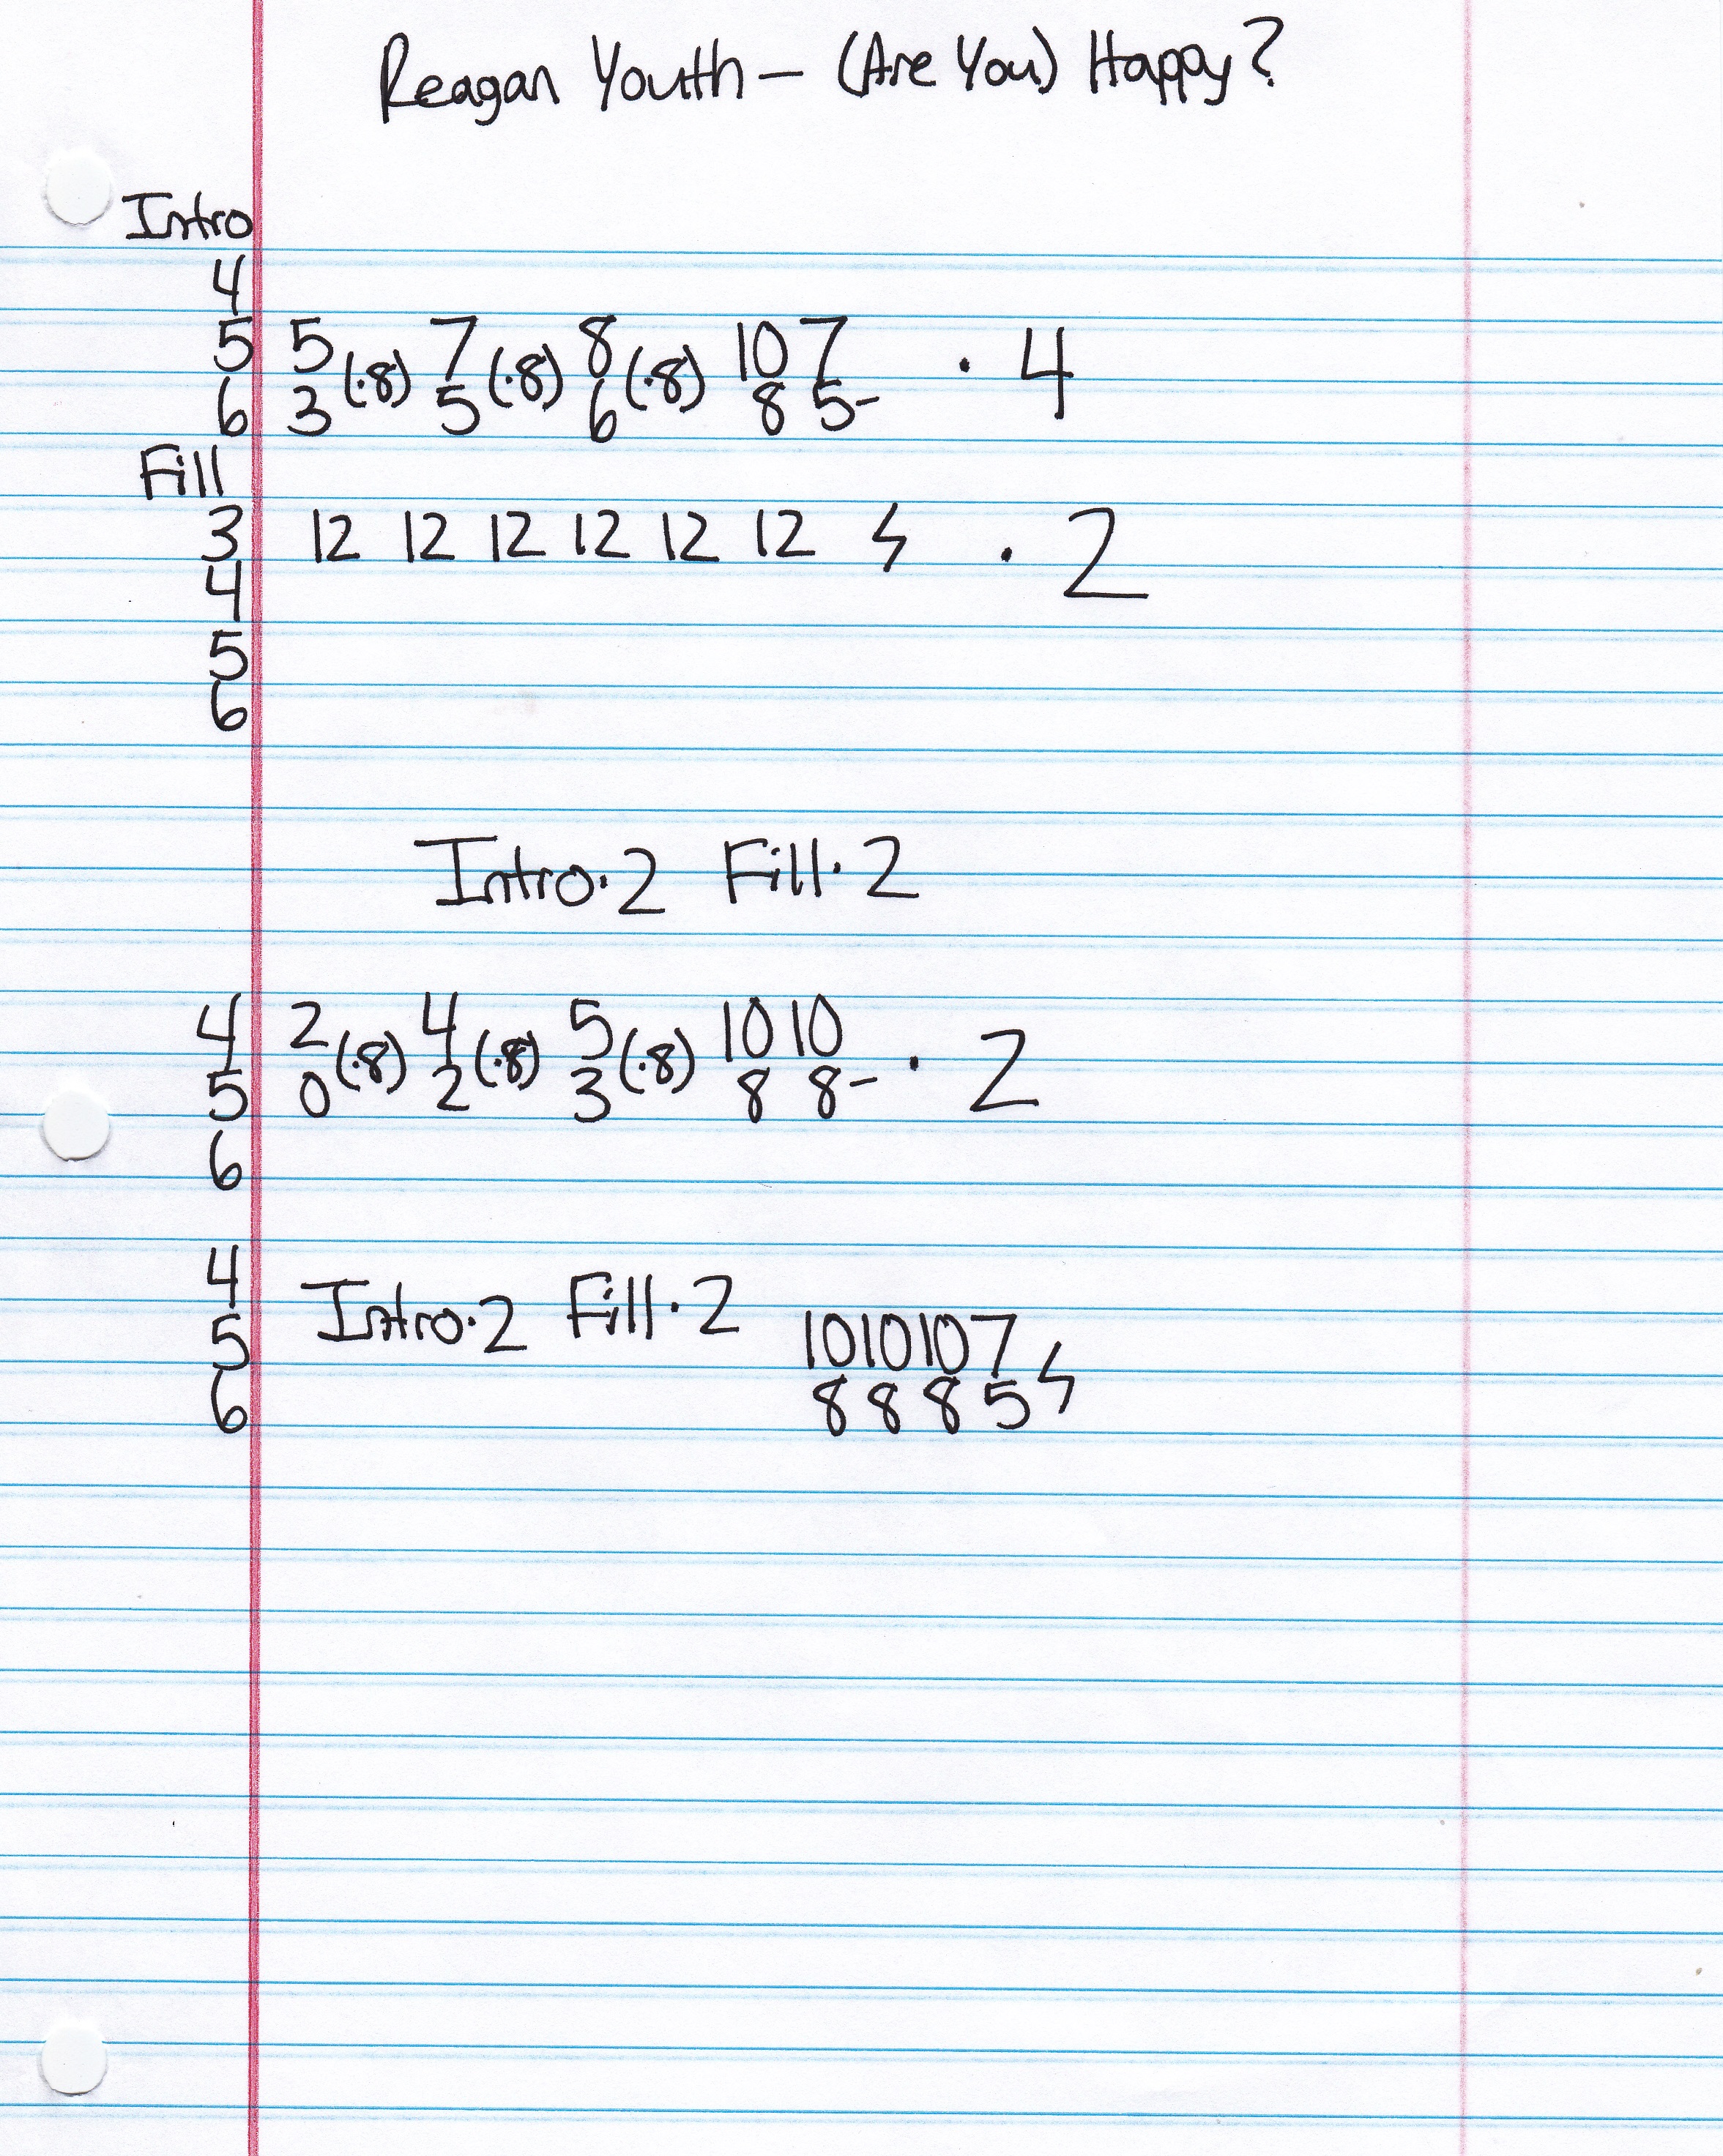 Reagan Youth — (Are You) Happy?
Intro
4
5 5 (·8) 7 (·8) 8 (·8) 10 7 · 4
6 3 5 6 8 5-
Fill
3 12 12 12 12 12 12 ϟ · 2
4
5
6
Intro·2 Fill·2
4 2 (·8) 4 (·8) 5 (·8) 10 10 · 2
5 0 2 3 8 8-
6
4
5 Intro·2 Fill·2 10 10 10 7 ϟ
6 8 8 8 5